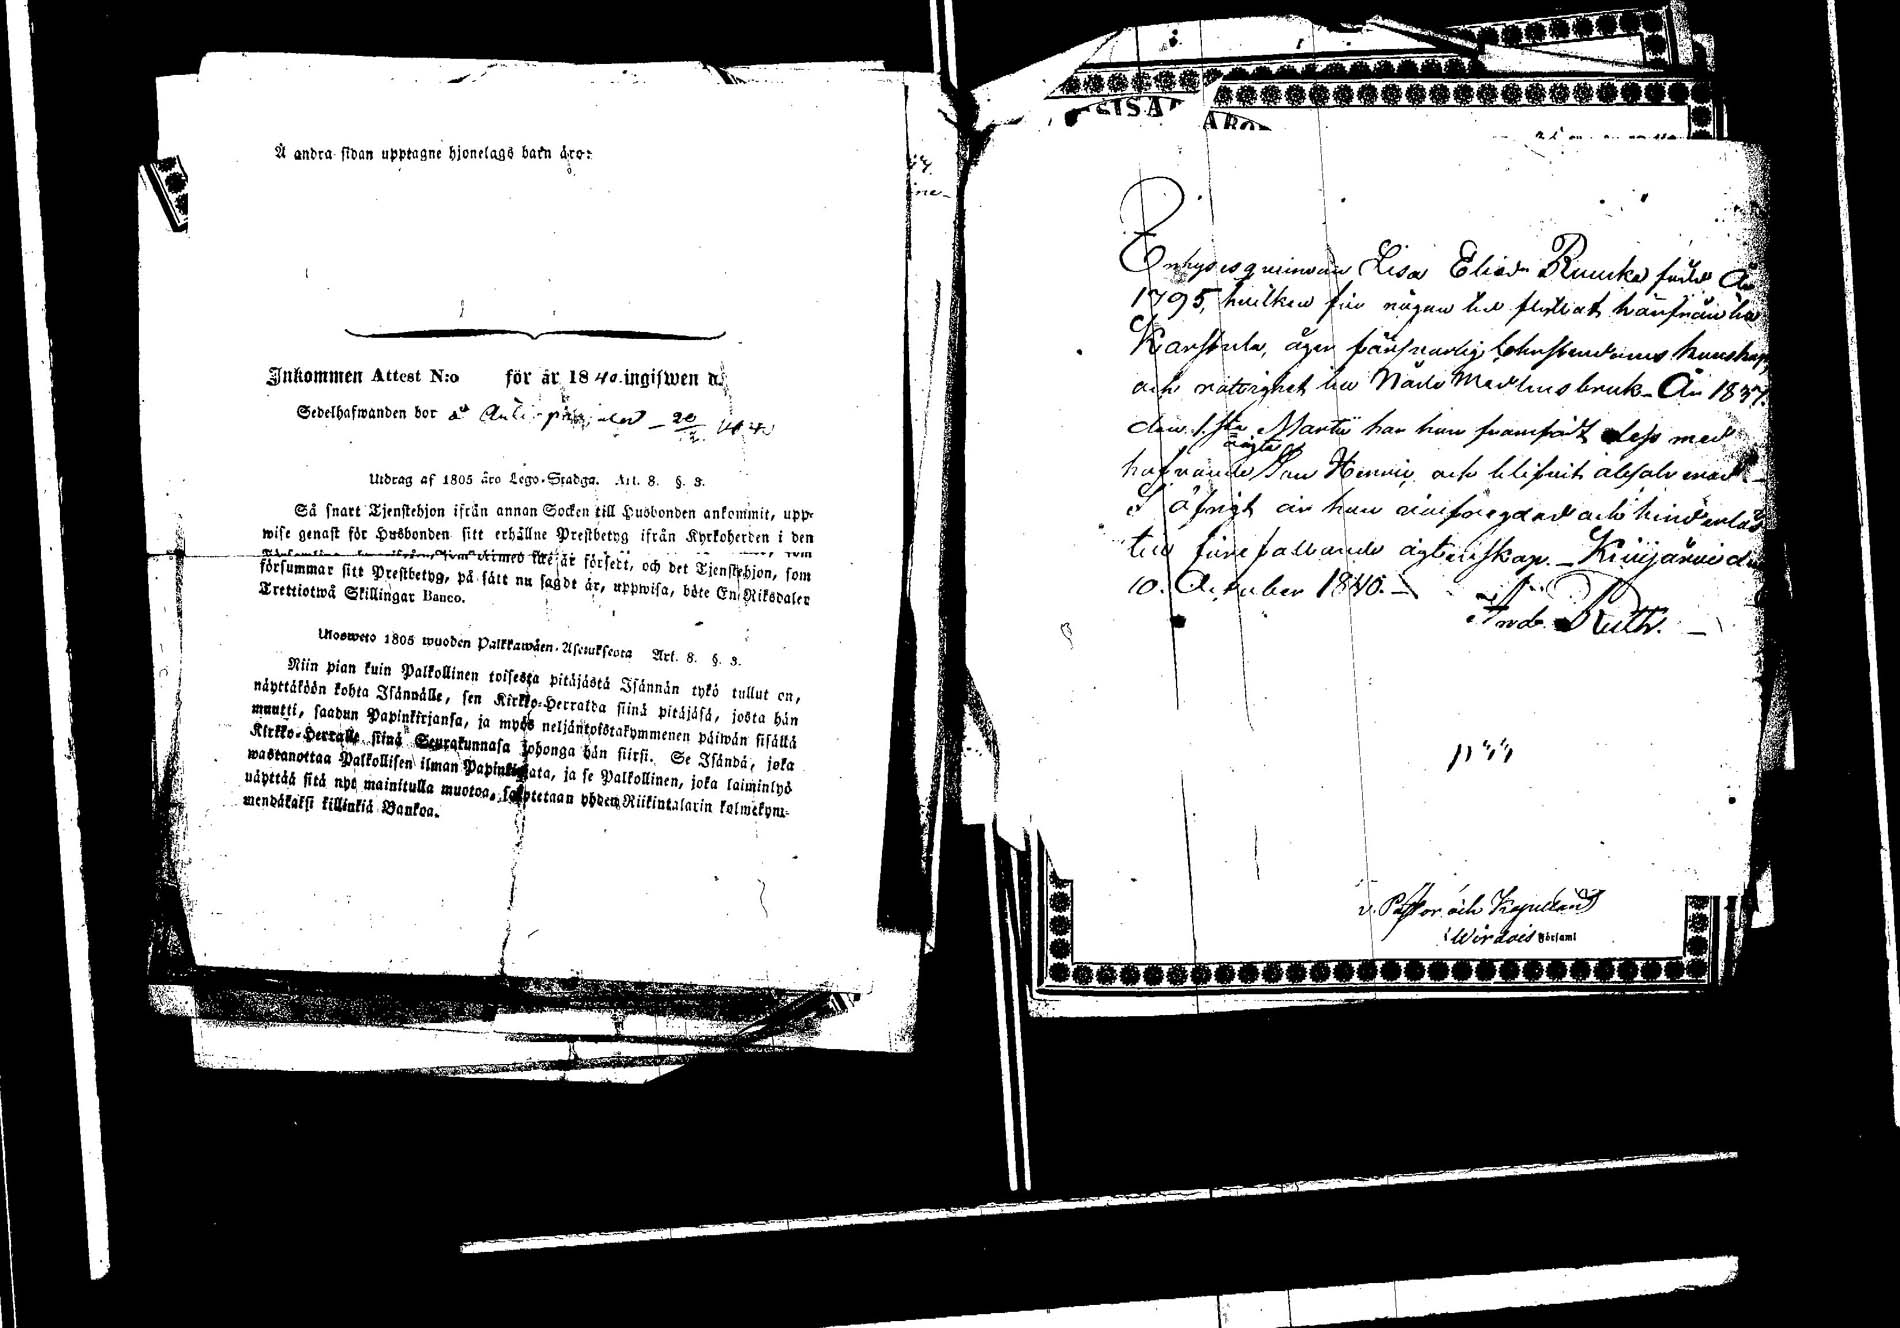 Å andra sidan upptagne hjonelags barn äro:
Inkommen Attest N:o för år 1840. ingifwen d.
Sedelhafwanden bor å
Utdrag af 1805 åro Lego-Stadga. Art. 8. §. 3.
Så snart Tjenstehjon ifrån annan Socken till Husbonden ankommit, upp-
wise genast för Husbonden sitt erhållne Prestbetyg ifrån Kyrkoherden i den
är försedt, och det Tjenstehjon, som
försummar sitt Prestbetyg, på sätt nu sagdt är, uppwisa, böte En Riksdaler
Trettiotwå Skillingar Banco.
Ulosweto 1805 wuoden Palkkawäen-Asetuksesta Art. 8. §. 3.
Niin pian kuin Palkollinen toisesta pitäjästä Isännän tykö tullut on,
näyttäköön kohta Isännälle, sen Kirkko-Herralda siinä pitäjäsä, josta hän
muutti, saadun Papinkirjansa, ja myös neljäntoistakymmenen päiwän sisällä
Kirkko-Herralle siinä Seurakunnasa johonga hän siirsi. Se Isändä, joka
wastanottaa Palkollisen ilman Papinkirjata, ja se Palkollinen, joka laiminlyö
näyttää sitä nyt mainitulla muotoa, sakotetaan yhden Riikintalarin kolmekym-
mendäkaksi killinkiä Bankoa.
SISA ABO
Enhysesqvinnan Lisa Eliæd:r Ruuska född År
1795, hvilken för någon tid flyttat härifrån till
Karstula, äger försvarlig Christendoms kunskap,
och rättighet till Nåde Medlens bruk. År 1837.
den 1.sta Martii har hon framfödt dess med
hafvande oägta Son Henric, och blifvit absolverad.
I öfrigt är hon oinfregdad och hinderlös
till förefallande ägtenskap. Kivijärvi den
10. October 1840.
And. Ruth.
v. Pastor och Kapellan
i Wirdois Församl